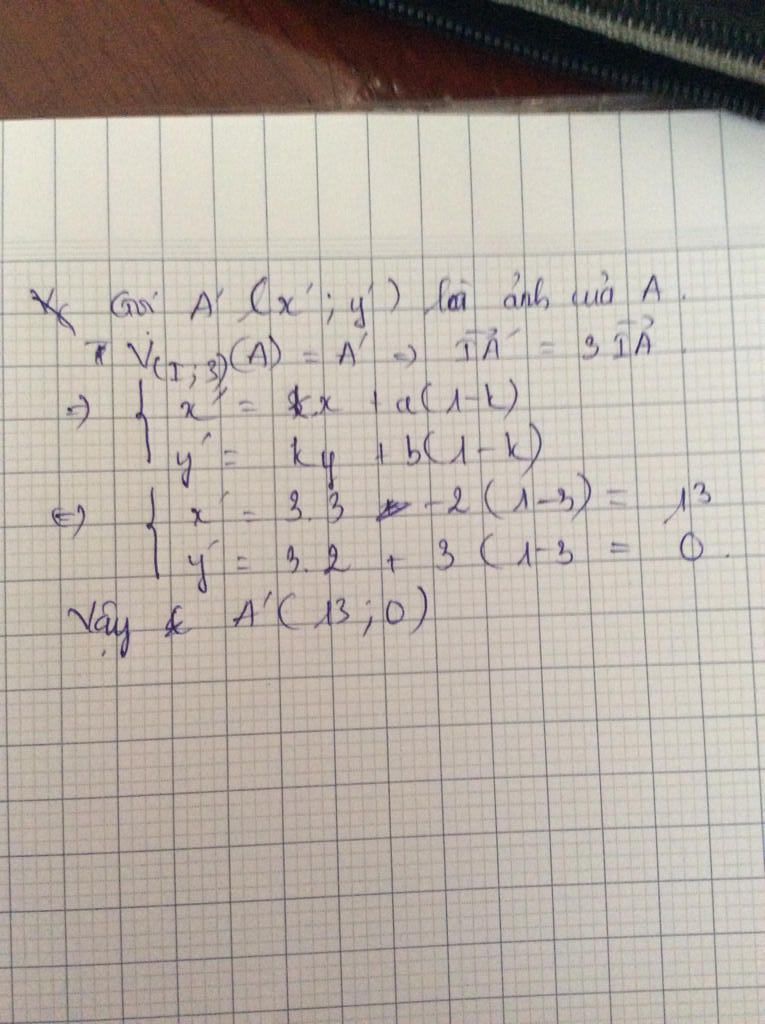 Gọi A' (x'; y') là ảnh của A.
V(I; 3)(A) = A' => IA' = 3 IA
=> { x' = kx + a(1-k)
y' = ky + b(1-k)
<=> { x' = 3.3 -2 (1-3) = 13
y' = 3.2 + 3 (1-3 = 0.
Vậy A' (13; 0)